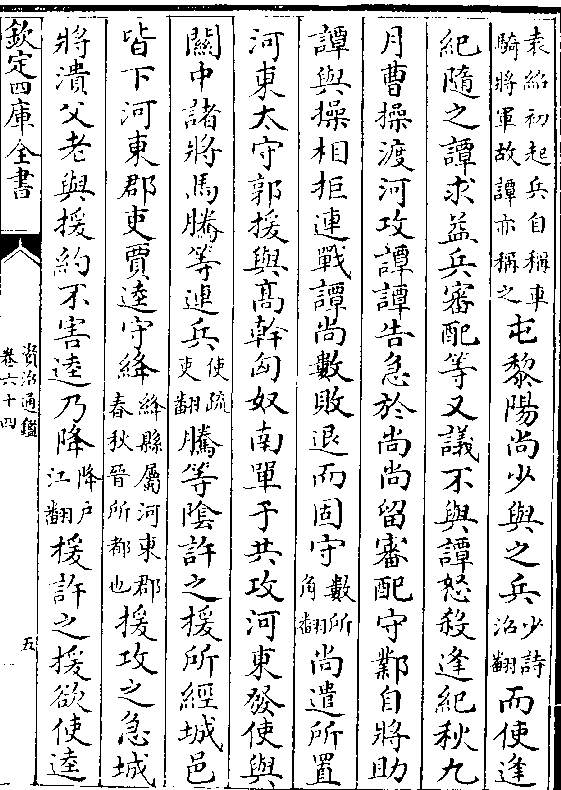 袁紹初起兵自稱車騎將軍故譚亦稱之屯黎陽尚少與之兵少詩沼翻而使逢
紀隨之譚求益兵審配等又議不與譚怒殺逢紀秋九
月曹操渡河攻譚譚告急於尚尚留審配守鄴自將助
譚與操相拒連戰譚尚數敗退而固守數所角翻尚遣所置
河東太守郭援與高幹匈奴南單于共攻河東發使與
關中諸將馬騰等連兵使疏吏翻騰等陰許之援所經城邑
皆下河東郡吏賈逵守絳絳縣屬河東郡春秋晉所都也援攻之急城
將潰父老與援約不害逵乃降降户江翻援許之援欲使逵
欽定四庫全書
資治通鑑
卷六十四
五